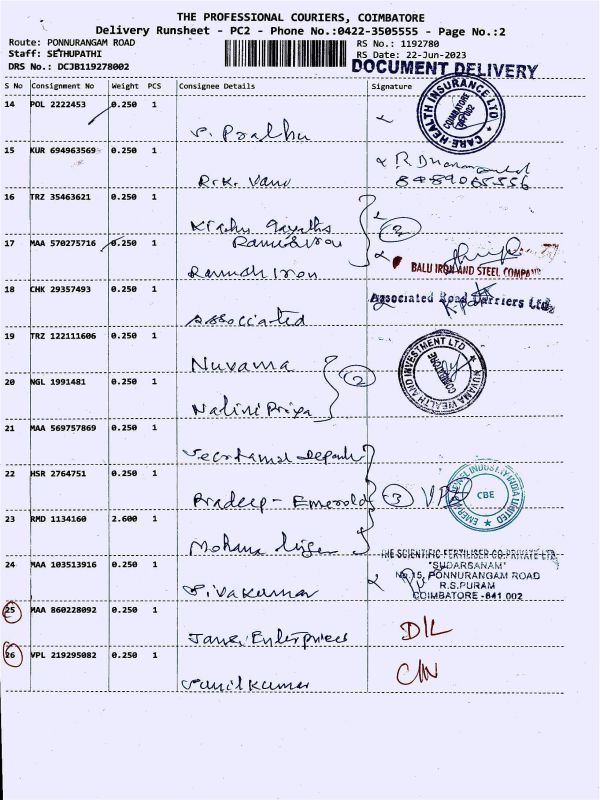 THE PROFESSIONAL COURIERS, COIMBATORE
Delivery Runsheet - PC2 - Phone No.:0422-3505555 - Page No.:2
Route: PONNURANGAM ROAD RS No.: 1192780
Staff: SETHUPATHI RS Date: 22-Jun-2023
DRS No.: DCJB119278002 DOCUMENT DELIVERY
S No Consignment No Weight PCS Consignee Details Signature
14 POL 2222453 0.250 1
CARE HEALTH INSURANCE LTD
COIMBATORE
S. Prabhu
15 KUR 694963569 0.250 1
8489065556
R.K. Vano
16 TRZ 35463621 0.250 1
2
17 MAA 570275716 0.250 1
BALU IRON AND STEEL COMPANY
Ramesh Iron
18 CHK 29357493 0.250 1
Associated Road Carriers Ltd.
Associated
19 TRZ 122111606 0.250 1
NUVAMA WEALTH AND INVESTMENT LTD
COIMBATORE
Nuvama
20 NGL 1991481 0.250 1
2
Nalini Priya
21 MAA 569757869 0.250 1
22 HSR 2764751 0.250 1
Pradeep - Emerald
3
EMERALD JEWEL INDUSTRY INDIA LIMITED
CBE
23 RMD 1134160 2.600 1
Mohana
24 MAA 103513916 0.250 1
THE SCIENTIFIC FERTILISER CO PRIVATE LTD
"SUDARSANAM"
No.15, PONNURANGAM ROAD
R.S.PURAM
COIMBATORE - 641 002
Sivakumar
25 MAA 860228092 0.250 1
D/L
Enterprises
26 VPL 219295082 0.250 1
Sunil Kumar